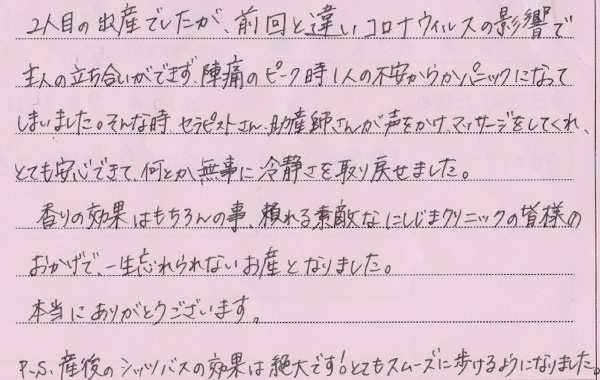 2人目の出産でしたが、前回と違いコロナウィルスの影響で
主人の立ち合いができず、陣痛のピーク時1人の不安からかパニックになって
しまいました。そんな時 セラピストさん、助産師さんが声をかけ、マッサージをしてくれ、
とても安心できて、何とか無事に冷静さを取り戻せました。
香りの効果はもちろんの事、頼れる素敵なにしじまクリニックの皆様の
おかげで、一生忘れられないお産となりました。
本当にありがとうございます。
P.S. 産後のシッツバスの効果は絶大です!とてもスムーズに歩けるようになりました。